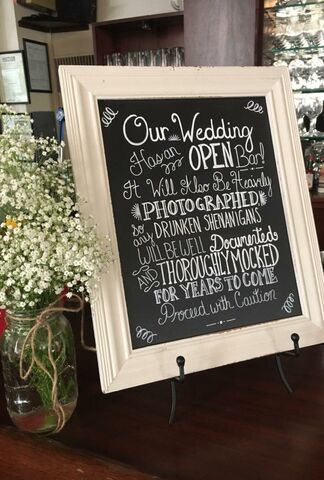 Our Wedding
Has an OPEN Bar!
It Will Also Be Heavily
PHOTOGRAPHED
so any DRUNKEN SHENANIGANS
WILL BE WELL Documented
AND THOROUGHLY MOCKED
FOR YEARS TO COME
Proceed with Caution